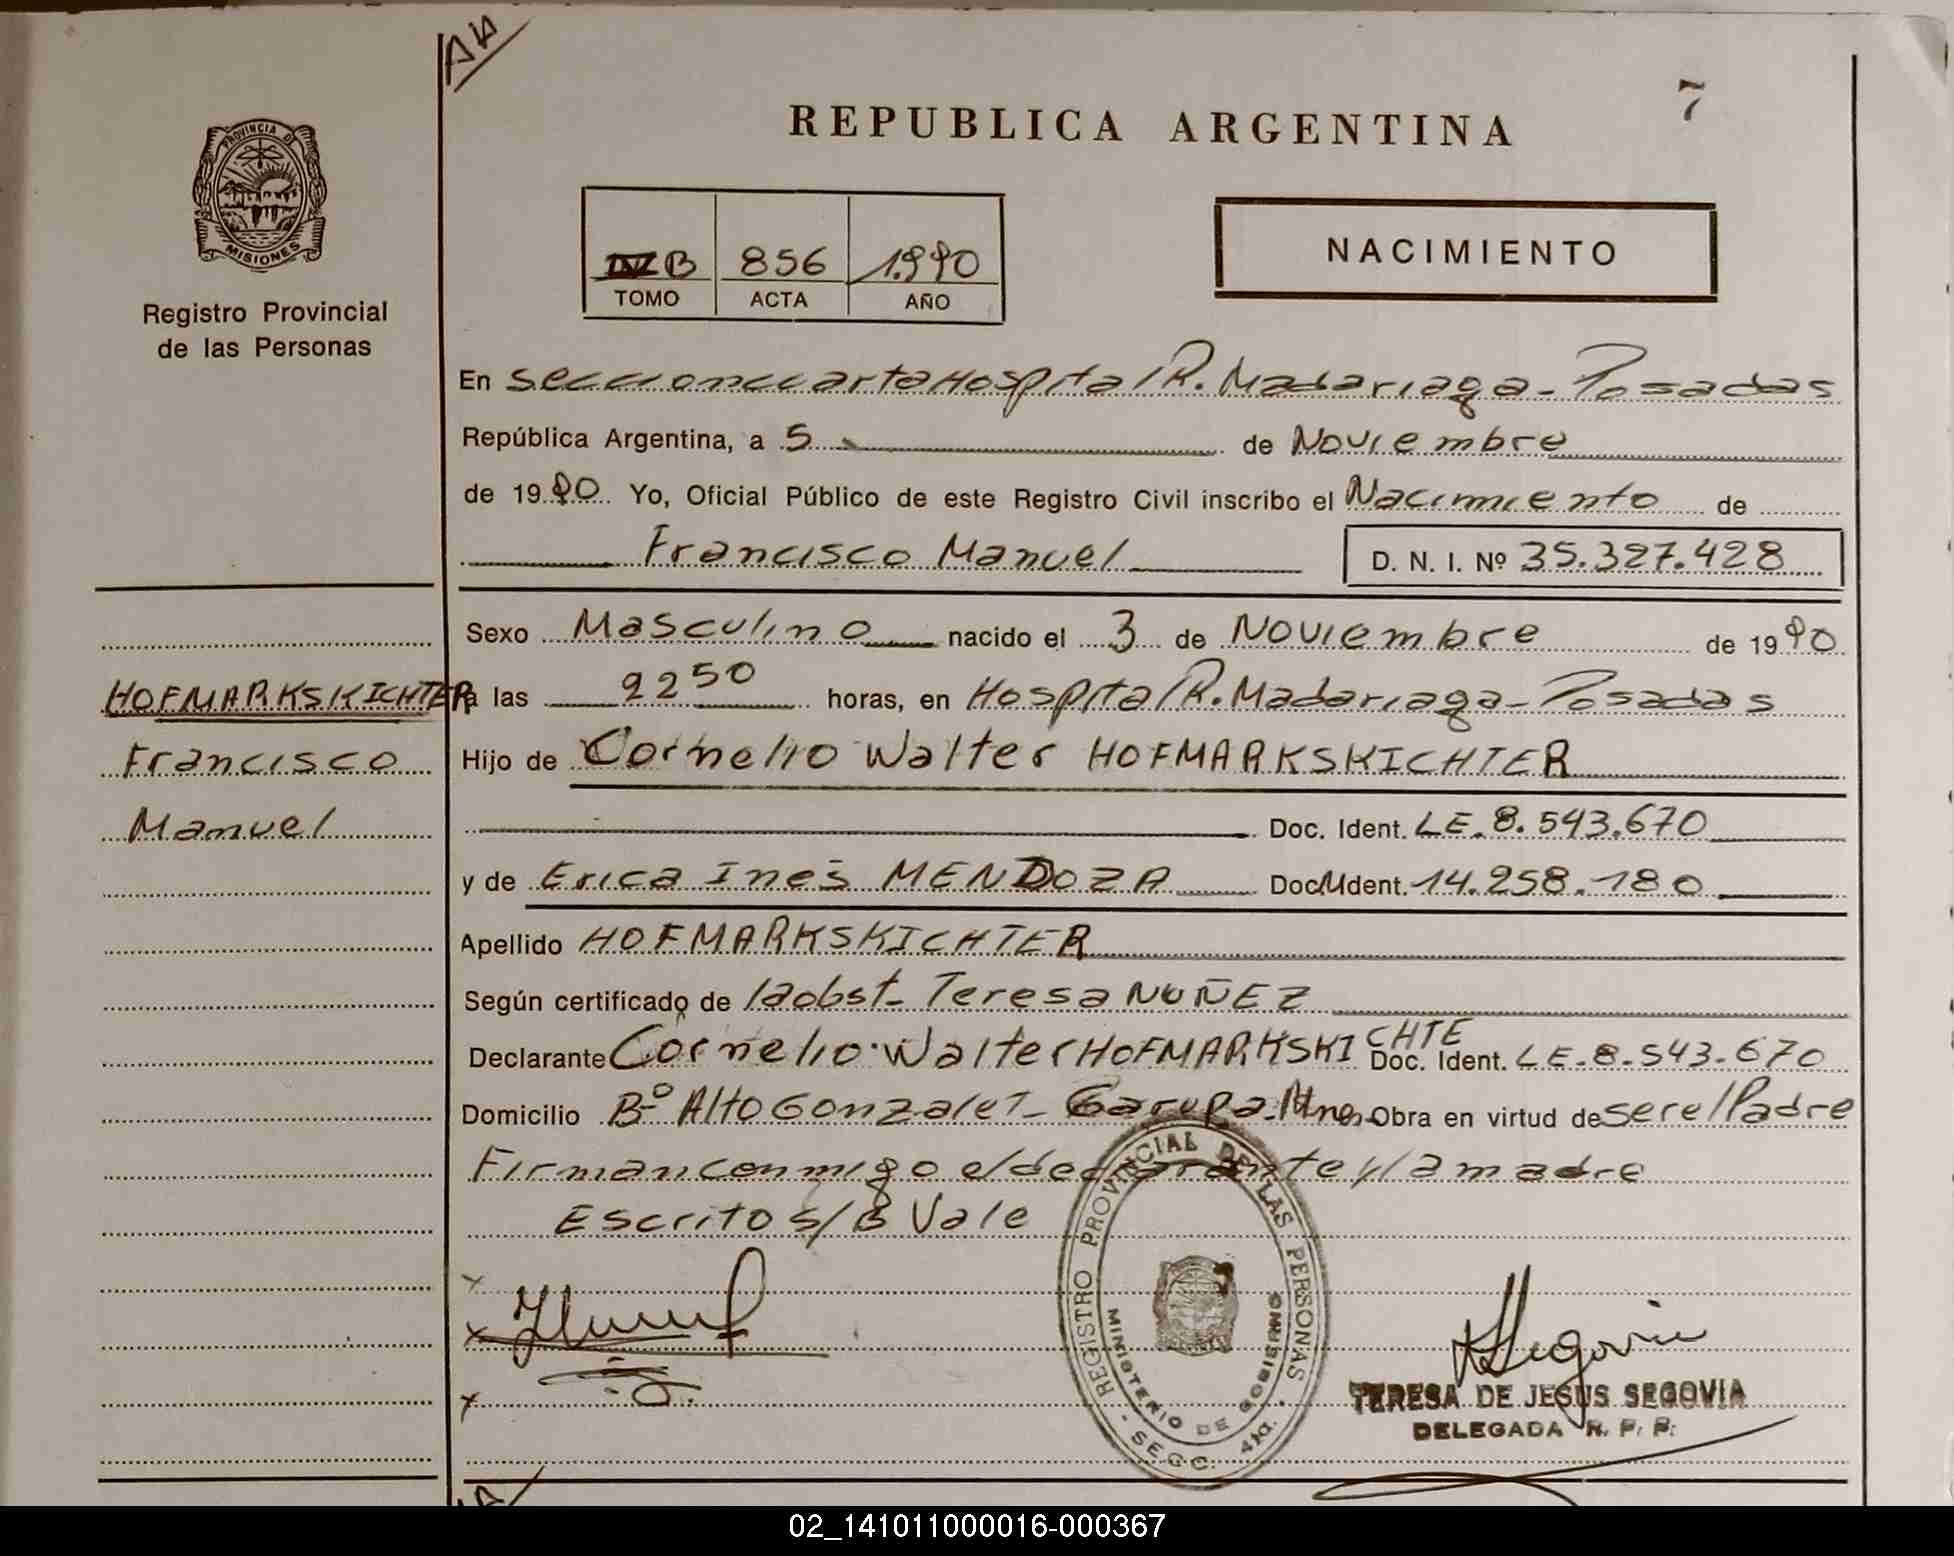 AH
7
REPUBLICA ARGENTINA
PROVINCIA DE
MISIONES
Registro Provincial
de las Personas
B 856 1.990
TOMO ACTA AÑO
NACIMIENTO
En seccion cuarta Hospital R. Madariaga - Posadas
República Argentina, a 5 de Noviembre
de 1990 Yo, Oficial Público de este Registro Civil inscribo el Nacimiento de
Francisco Manuel D. N. I. Nº 35.327.428
Sexo Masculino nacido el 3 de Noviembre de 1990
a las 2250 horas, en Hospital R. Madariaga - Posadas
Hijo de Cornelio Walter HOFMARKSKICHTER
Doc. Ident. LE. 8.543.670
y de Erica Ines MENDOZA Doc. Ident. 14.258.180
Apellido HOFMARKSKICHTER
Según certificado de la obst- Teresa NUÑEZ
Declarante Cornelio Walter HOFMARKSKICHTE Doc. Ident. LE-8-543-670
Domicilio Bº Alto Gonzalez - Garupa - Mnes Obra en virtud de ser el Padre
Firman conmigo el declarante y la madre
Escrito s/B Vale
HOFMARKSKICHTER
Francisco
Manuel
REGISTRO PROVINCIAL DE LAS PERSONAS
MINISTERIO DE GOBIERNO
SECC. 4ta.
Segovia
TERESA DE JESUS SEGOVIA
DELEGADA R. P. P.
02_141011000016-000367